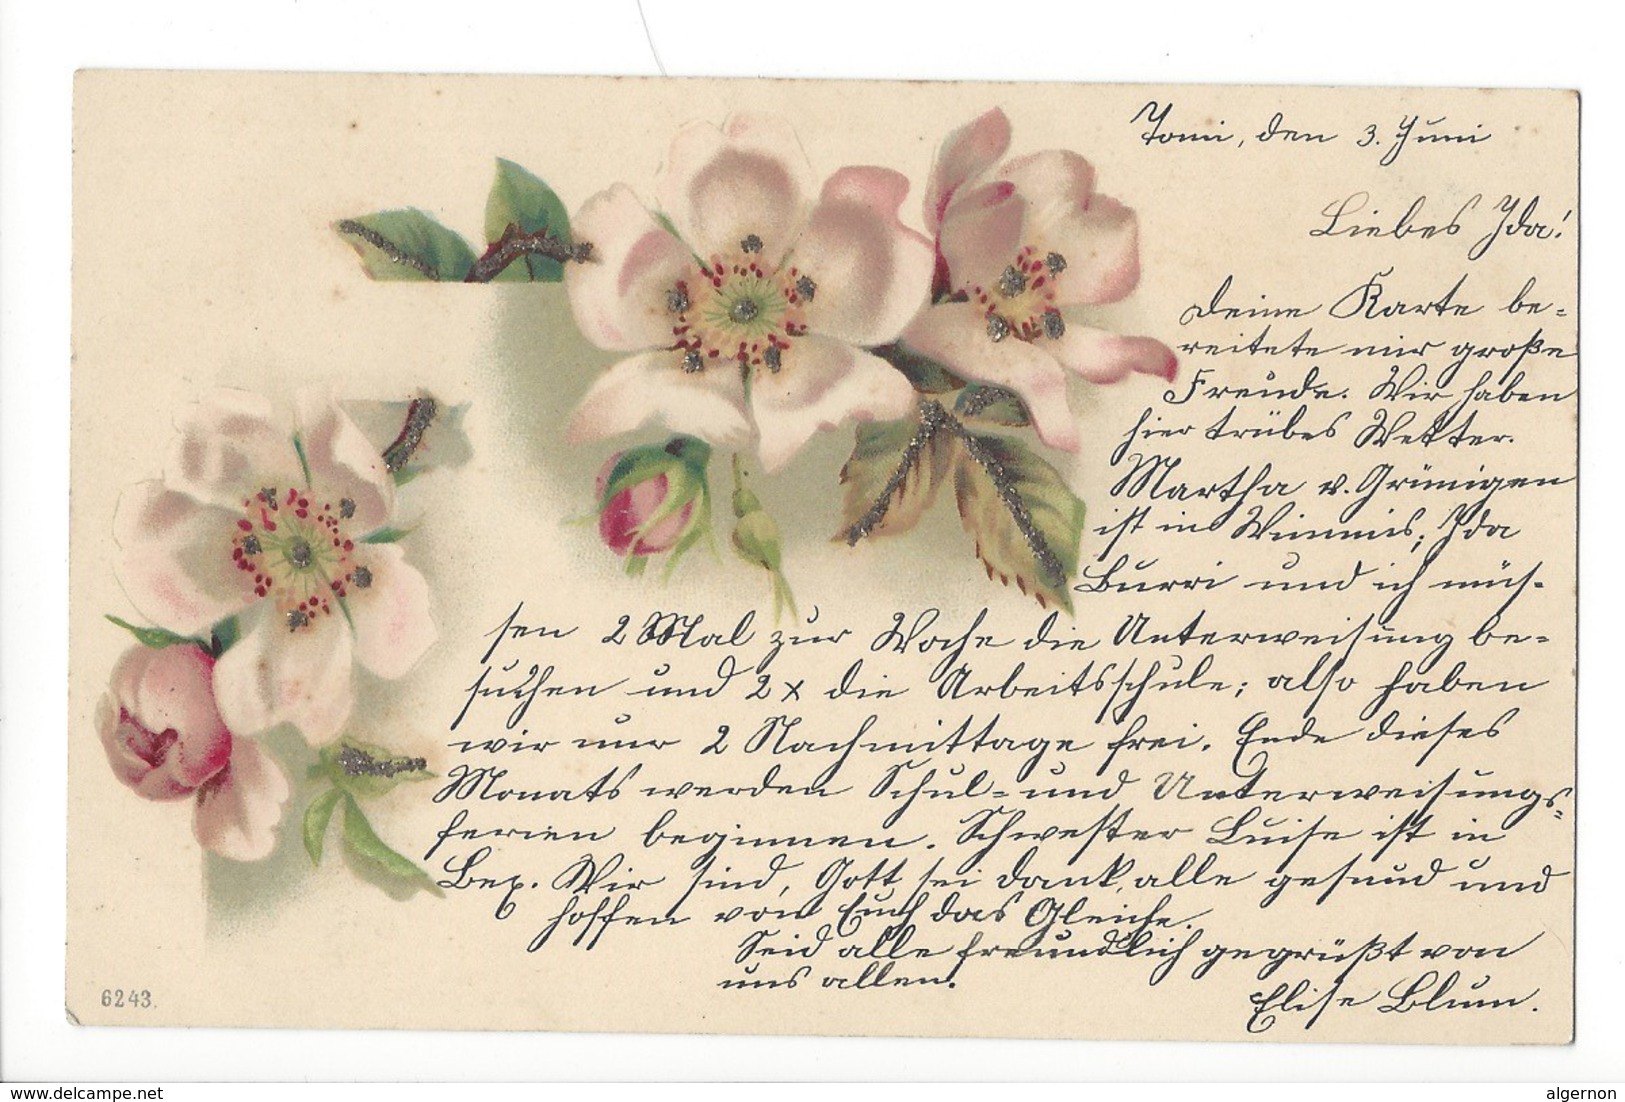 Tomi, den 3. Juni
Liebes Ida!
Deine Karte be=
reitete mir große
Freude. Wir haben
hier trübes Wetter.
Martha v. Grünigen
ist in Wimmis; Ida
Burri und ich müs-
sen 2 Mal zur Woche die Unterweisung be=
suchen und 2 x die Arbeitsschule; also haben
wir nur 2 Nachmittage frei. Ende dieses
Monats werden Schul= und Unterweisungs=
ferien beginnen. Schwester Luise ist in
Bex. Wir sind, Gott sei dank, alle gesund und
hoffen von Euch das Gleiche.
Seid alle freundlich gegrüßt von
uns allen.
Elise Blum.
6243.
www.delcampe.net
algernon